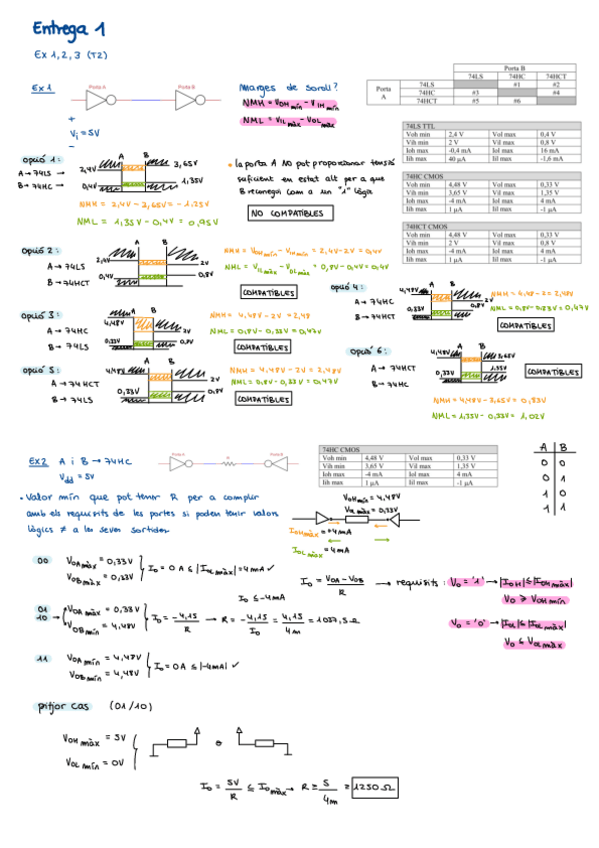 Entrega 1
Ex 1, 2, 3 (T2)
Ex 1
Porta A
Porta B
Vi = 5V
Marges de soroll?
NMH = VOH mín - VIH mín
NML = VIL màx - VOL màx
Porta B
74LS 74HC 74HCT
Porta A
74LS #1 #2
74HC #3 #4
74HCT #5 #6
74LS TTL
Voh min 2,4 V Vol max 0,4 V
Vih min 2 V Vil max 0,8 V
Ioh max -0,4 mA Iol max 16 mA
Iih max 40 µA Iil max -1,6 mA
74HC CMOS
Voh min 4,48 V Vol max 0,33 V
Vih min 3,65 V Vil max 1,35 V
Ioh max -4 mA Iol max 4 mA
Iih max 1 µA Iil max -1 µA
74HCT CMOS
Voh min 4,48 V Vol max 0,33 V
Vih min 2 V Vil max 0,8 V
Ioh max -4 mA Iol max 4 mA
Iih max 1 µA Iil max -1 µA
opció 1:
A → 74LS
B → 74HC
A B
2,4V 3,65V
0,4V 1,35V
NMH = 2,4V - 3,65V = -1,25V
NML = 1,35V - 0,4V = 0,95V
• la porta A NO pot proporcionar tensió
suficient en estat alt per a que
B reconegui com a un "1" lògic
NO COMPATIBLES
opció 2:
A → 74LS
B → 74HCT
A B
2,4V 2V
0,4V 0,8V
NMH = VOH mín - VIH mín = 2,4V - 2V = 0,4V
NML = VIL màx - VOL màx = 0,8V - 0,4V = 0,4V
COMPATIBLES
opció 3:
A → 74HC
B → 74LS
A B
4,48V 2V
0,33V 0,8V
NMH = 4,48V - 2V = 2,48
NML = 0,8V - 0,33V = 0,47V
COMPATIBLES
opció 4:
A → 74HC
B → 74HCT
A B
4,48V 2V
0,33V 0,8V
NMH = 4,48 - 2 = 2,48V
NML = 0,8V - 0,33V = 0,47V
COMPATIBLES
opció 5:
A → 74HCT
B → 74LS
A B
4,48V 2V
0,33V 0,8V
NMH = 4,48V - 2V = 2,48V
NML = 0,8V - 0,33V = 0,47V
COMPATIBLES
opció 6:
A → 74HCT
B → 74HC
A B
4,48V 3,65V
0,33V 1,35V
COMPATIBLES
NMH = 4,48V - 3,65V = 0,83V
NML = 1,35V - 0,33V = 1,02V
Ex2 A i B → 74HC
Vdd = 5V
Porta A
R
Porta B
74HC CMOS
Voh min 4,48 V Vol max 0,33 V
Vih min 3,65 V Vil max 1,35 V
Ioh max -4 mA Iol max 4 mA
Iih max 1 µA Iil max -1 µA
A B
0 0
0 1
1 0
1 1
• Valor mín que pot tenir R per a complir
amb els requisits de les portes si poden tenir valors
lògics ≠ a les seves sortides
VOH mín = 4,48V
VOL màx = 0,33V
IOH màx = -4mA
IOL màx = 4mA
00
VOA màx = 0,33V
VOB màx = 0,33V
Io = 0 A ≤ |IOL màx| = 4mA ✓
Io = VOA - VOB / R → requisits:
Vo = '1' → |IOH| ≤ |IOH màx|
Vo ≥ VOH mín
Vo = '0' → |IOL| ≤ |IOL màx|
Vo ≤ VOL màx
Io ≤ -4mA
01
10 →
VOA màx = 0,33V
VOB mín = 4,48V
Io = -4,15 / R → R = -4,15 / Io = 4,15 / 4m = 1037,5 Ω
11
VOA mín = 4,48V
VOB mín = 4,48V
Io = 0 A ≤ |-4mA| ✓
pitjor cas (01/10)
VOH màx = 5V
VOL mín = 0V
o
Io = 5V / R ≤ IO màx → R ≥ 5 / 4m = 1250 Ω